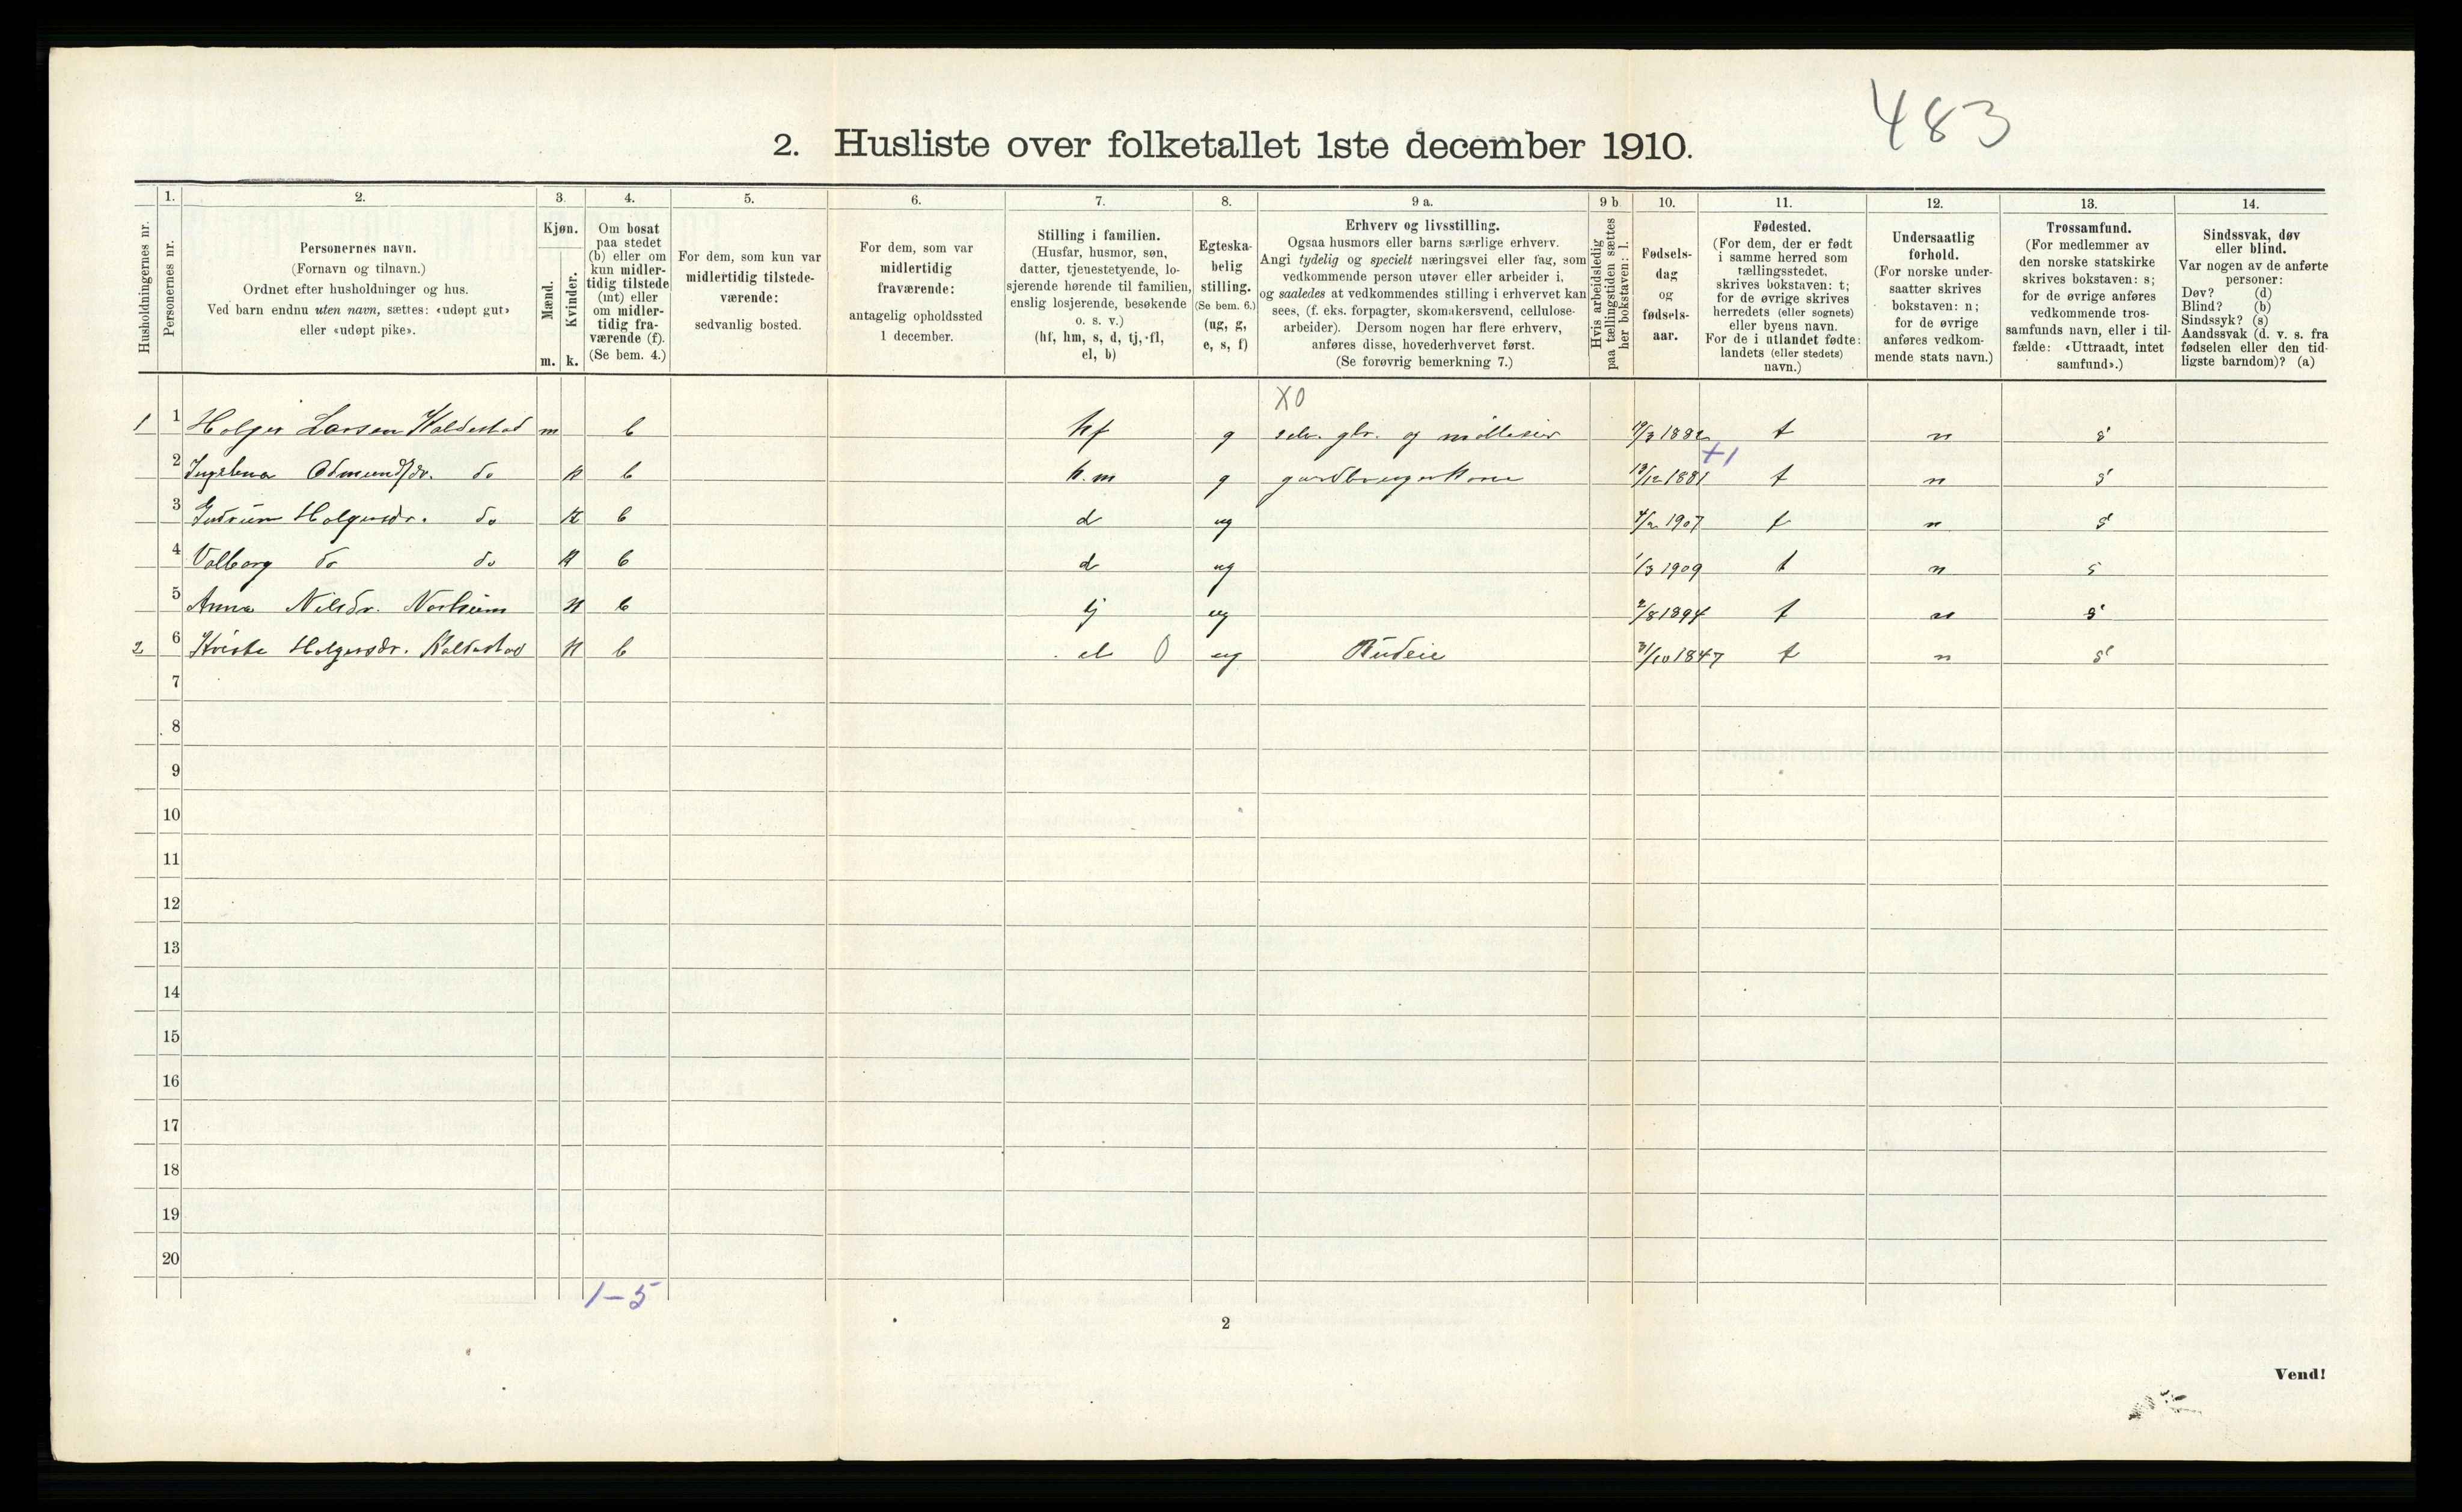 483
2. Husliste over folketallet 1ste december 1910.
1. 2. 3. 4. 5. 6. 7. 8. 9 a. 9 b 10. 11. 12. 13. 14.
Husholdningernes nr.
Personernes nr.
Personernes navn.
(Fornavn og tilnavn.)
Ordnet efter husholdninger og hus.
Ved barn endnu uten navn, sættes: «udøpt gut»
eller «udøpt pike».
Kjøn.
Mænd.
Kvinder.
m. k.
Om bosat
paa stedet
(b) eller om
kun midler-
tidig tilstede
(mt) eller
om midler-
tidig fra-
værende (f).
(Se bem. 4.)
For dem, som kun var
midlertidig tilstede-
værende:
sedvanlig bosted.
For dem, som var
midlertidig
fraværende:
antagelig opholdssted
1 december.
Stilling i familien.
(Husfar, husmor, søn,
datter, tjenestetyende, lo-
sjerende hørende til familien,
enslig losjerende, besøkende
o. s. v.)
(hf, hm, s, d, tj, fl,
el, b)
Egteska-
belig
stilling.
(Se bem. 6.)
(ug, g,
e, s, f)
Erhverv og livsstilling.
Ogsaa husmors eller barns særlige erhverv.
Angi tydelig og specielt næringsvei eller fag, som
vedkommende person utøver eller arbeider i,
og saaledes at vedkommendes stilling i erhvervet kan
sees, (f. eks. forpagter, skomakersvend, cellulose-
arbeider). Dersom nogen har flere erhverv,
anføres disse, hovederhvervet først.
(Se forøvrig bemerkning 7.)
Hvis arbeidsledig
paa tællingstiden sættes
her bokstaven: l.
Fødsels-
dag
og
fødsels-
aar.
Fødested.
(For dem, der er født
i samme herred som
tællingsstedet,
skrives bokstaven: t;
for de øvrige skrives
herredets (eller sognets)
eller byens navn.
For de i utlandet fødte:
landets (eller stedets)
navn.)
Undersaatlig
forhold.
(For norske under-
saatter skrives
bokstaven: n;
for de øvrige
anføres vedkom-
mende stats navn.)
Trossamfund.
(For medlemmer av
den norske statskirke
skrives bokstaven: s;
for de øvrige anføres
vedkommende tros-
samfunds navn, eller i til-
fælde: «Uttraadt, intet
samfund».)
Sindssvak, døv
eller blind.
Var nogen av de anførte
personer:
Døv? (d)
Blind? (b)
Sindssyk? (s)
Aandssvak (d. v. s. fra
fødselen eller den tid-
ligste barndom)? (a)
X0
1 1 Holger Larsen Kaldestad m b hf g selv. gbr. og 19/3 1882 t n s
+1
2 Ingelena Odmundsdr. do k b h.m g gardbrugerkone 13/12 1881 t n s
3 Gudrun Holgersdr. do k b d ug 4/2 1907 t n s
4 Valborg do do k b d ug 1/3 1909 t n s
5 Anna Nilsdr. Norheim k b tj ug 2/8 1894 t n s
2 6 Holgersdr. Kaldestad k b el 0 ug Budeie 31/10 1847 t n s
7
8
9
10
11
12
13
14
15
16
17
18
19
20
1-5
2
Vend!